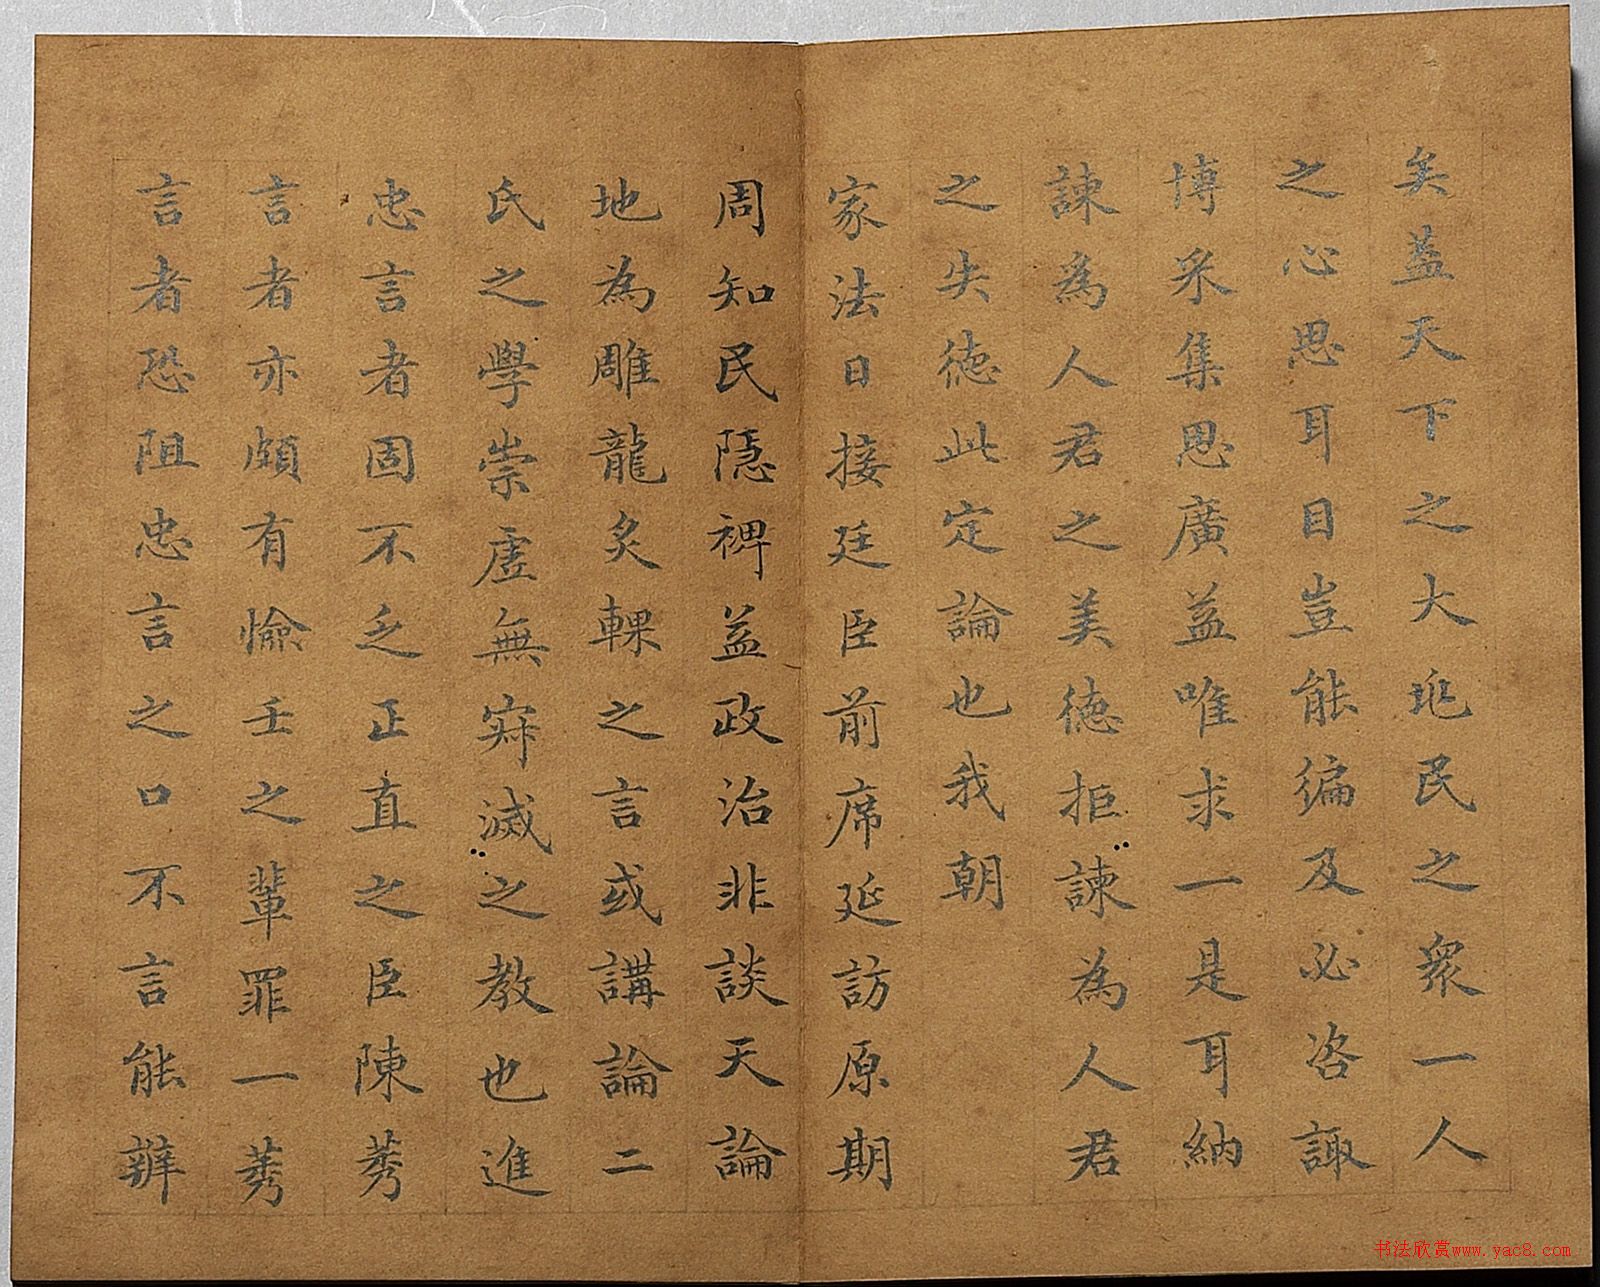 矣益天下之大兆民之衆一人
之心思耳目豈能徧及必咨諏
博采集思廣益唯求一是耳納
諫為人君之美德拒諫為人君
之失德此定論也我朝
家法日接廷臣前席延訪原期
周知民隱裨益政治非談天論
地為雕龍炙輠之言或講論二
氏之學崇虛無寂滅之教也進
忠言者固不乏正直之臣陳莠
言者亦頗有憸壬之輩罪一莠
言者恐阻忠言之口不言能辨
书法欣赏www.yac8.com